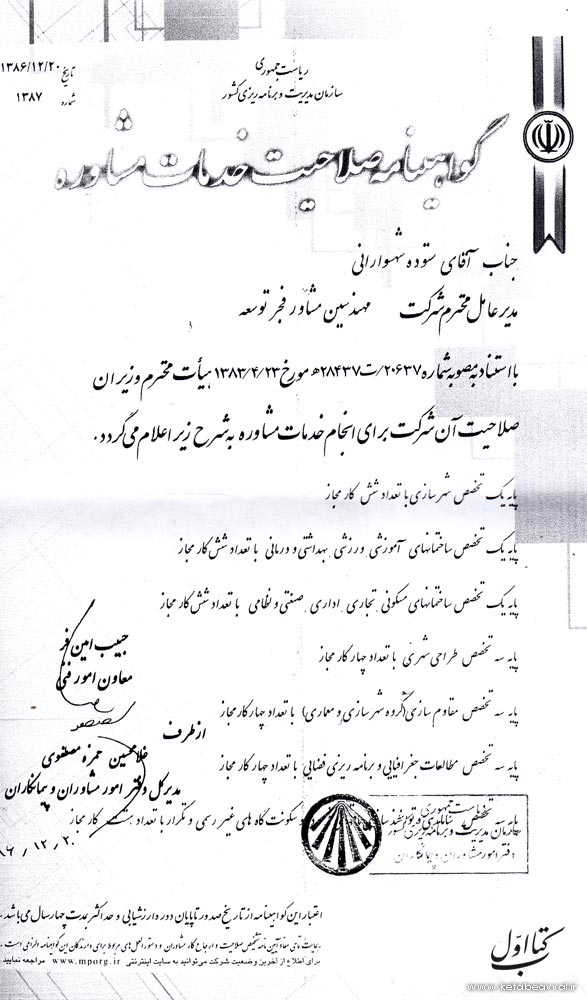 ریاست جمهوری
سازمان مدیریت و برنامه ریزی کشور
تاریخ ۱۳۸۶/۱۲/۲۰
شماره ۱۳۸۷
گواهینامه صلاحیت خدمات مشاوره
جناب آقای ستوده شهوارانی
مدیرعامل محترم شرکت مهندسین مشاور فجر توسعه
با استناد به مصوبه شماره ۲۰۶۳۷/ت۲۸۴۳۷ه مورخ ۱۳۸۳/۴/۲۳ هیأت محترم وزیران
صلاحیت آن شرکت برای انجام خدمات مشاوره به شرح زیر اعلام می گردد.
پایه یک تخصص شهرسازی با تعداد شش کار مجاز
پایه یک تخصص ساختمانهای آموزشی ورزشی بهداشتی و درمانی با تعداد شش کار مجاز
پایه یک تخصص ساختمانهای مسکونی تجاری اداری صنعتی و نظامی با تعداد شش کار مجاز
پایه سه تخصص طراحی شهری با تعداد چهار کار مجاز
پایه سه تخصص مقاوم سازی (گروه شهرسازی و معماری) با تعداد چهار کار مجاز
پایه سه تخصص مطالعات جغرافیایی و برنامه ریزی فضایی با تعداد چهار کار مجاز
پایه سه تخصص سکونت گاه های غیر رسمی و تکرار با تعداد کار مجاز
حبیب امین فر
معاون امور فنی
از طرف
غلامحسین حمزه مصطفوی
مدیرکل دفتر امور مشاوران و پیمانکاران
ریاست جمهوری
سازمان مدیریت و برنامه ریزی کشور
دفتر امور مشاوران و پیمانکاران
اعتبار این گواهینامه از تاریخ صدور تا پایان دوره ارزشیابی و حداکثر بمدت چهار سال می باشد.
رعایت مفاد آیین نامه تشخیص صلاحیت و ارجاع کار مشاوران و دستورالعمل های مربوط برای دارندگان این گواهینامه الزامی است.
برای اطلاع از آخرین وضعیت شرکت می توانید به سایت اینترنتی www.mporg.ir مراجعه نمایید
کتاب اول
www.ketabeavval.ir